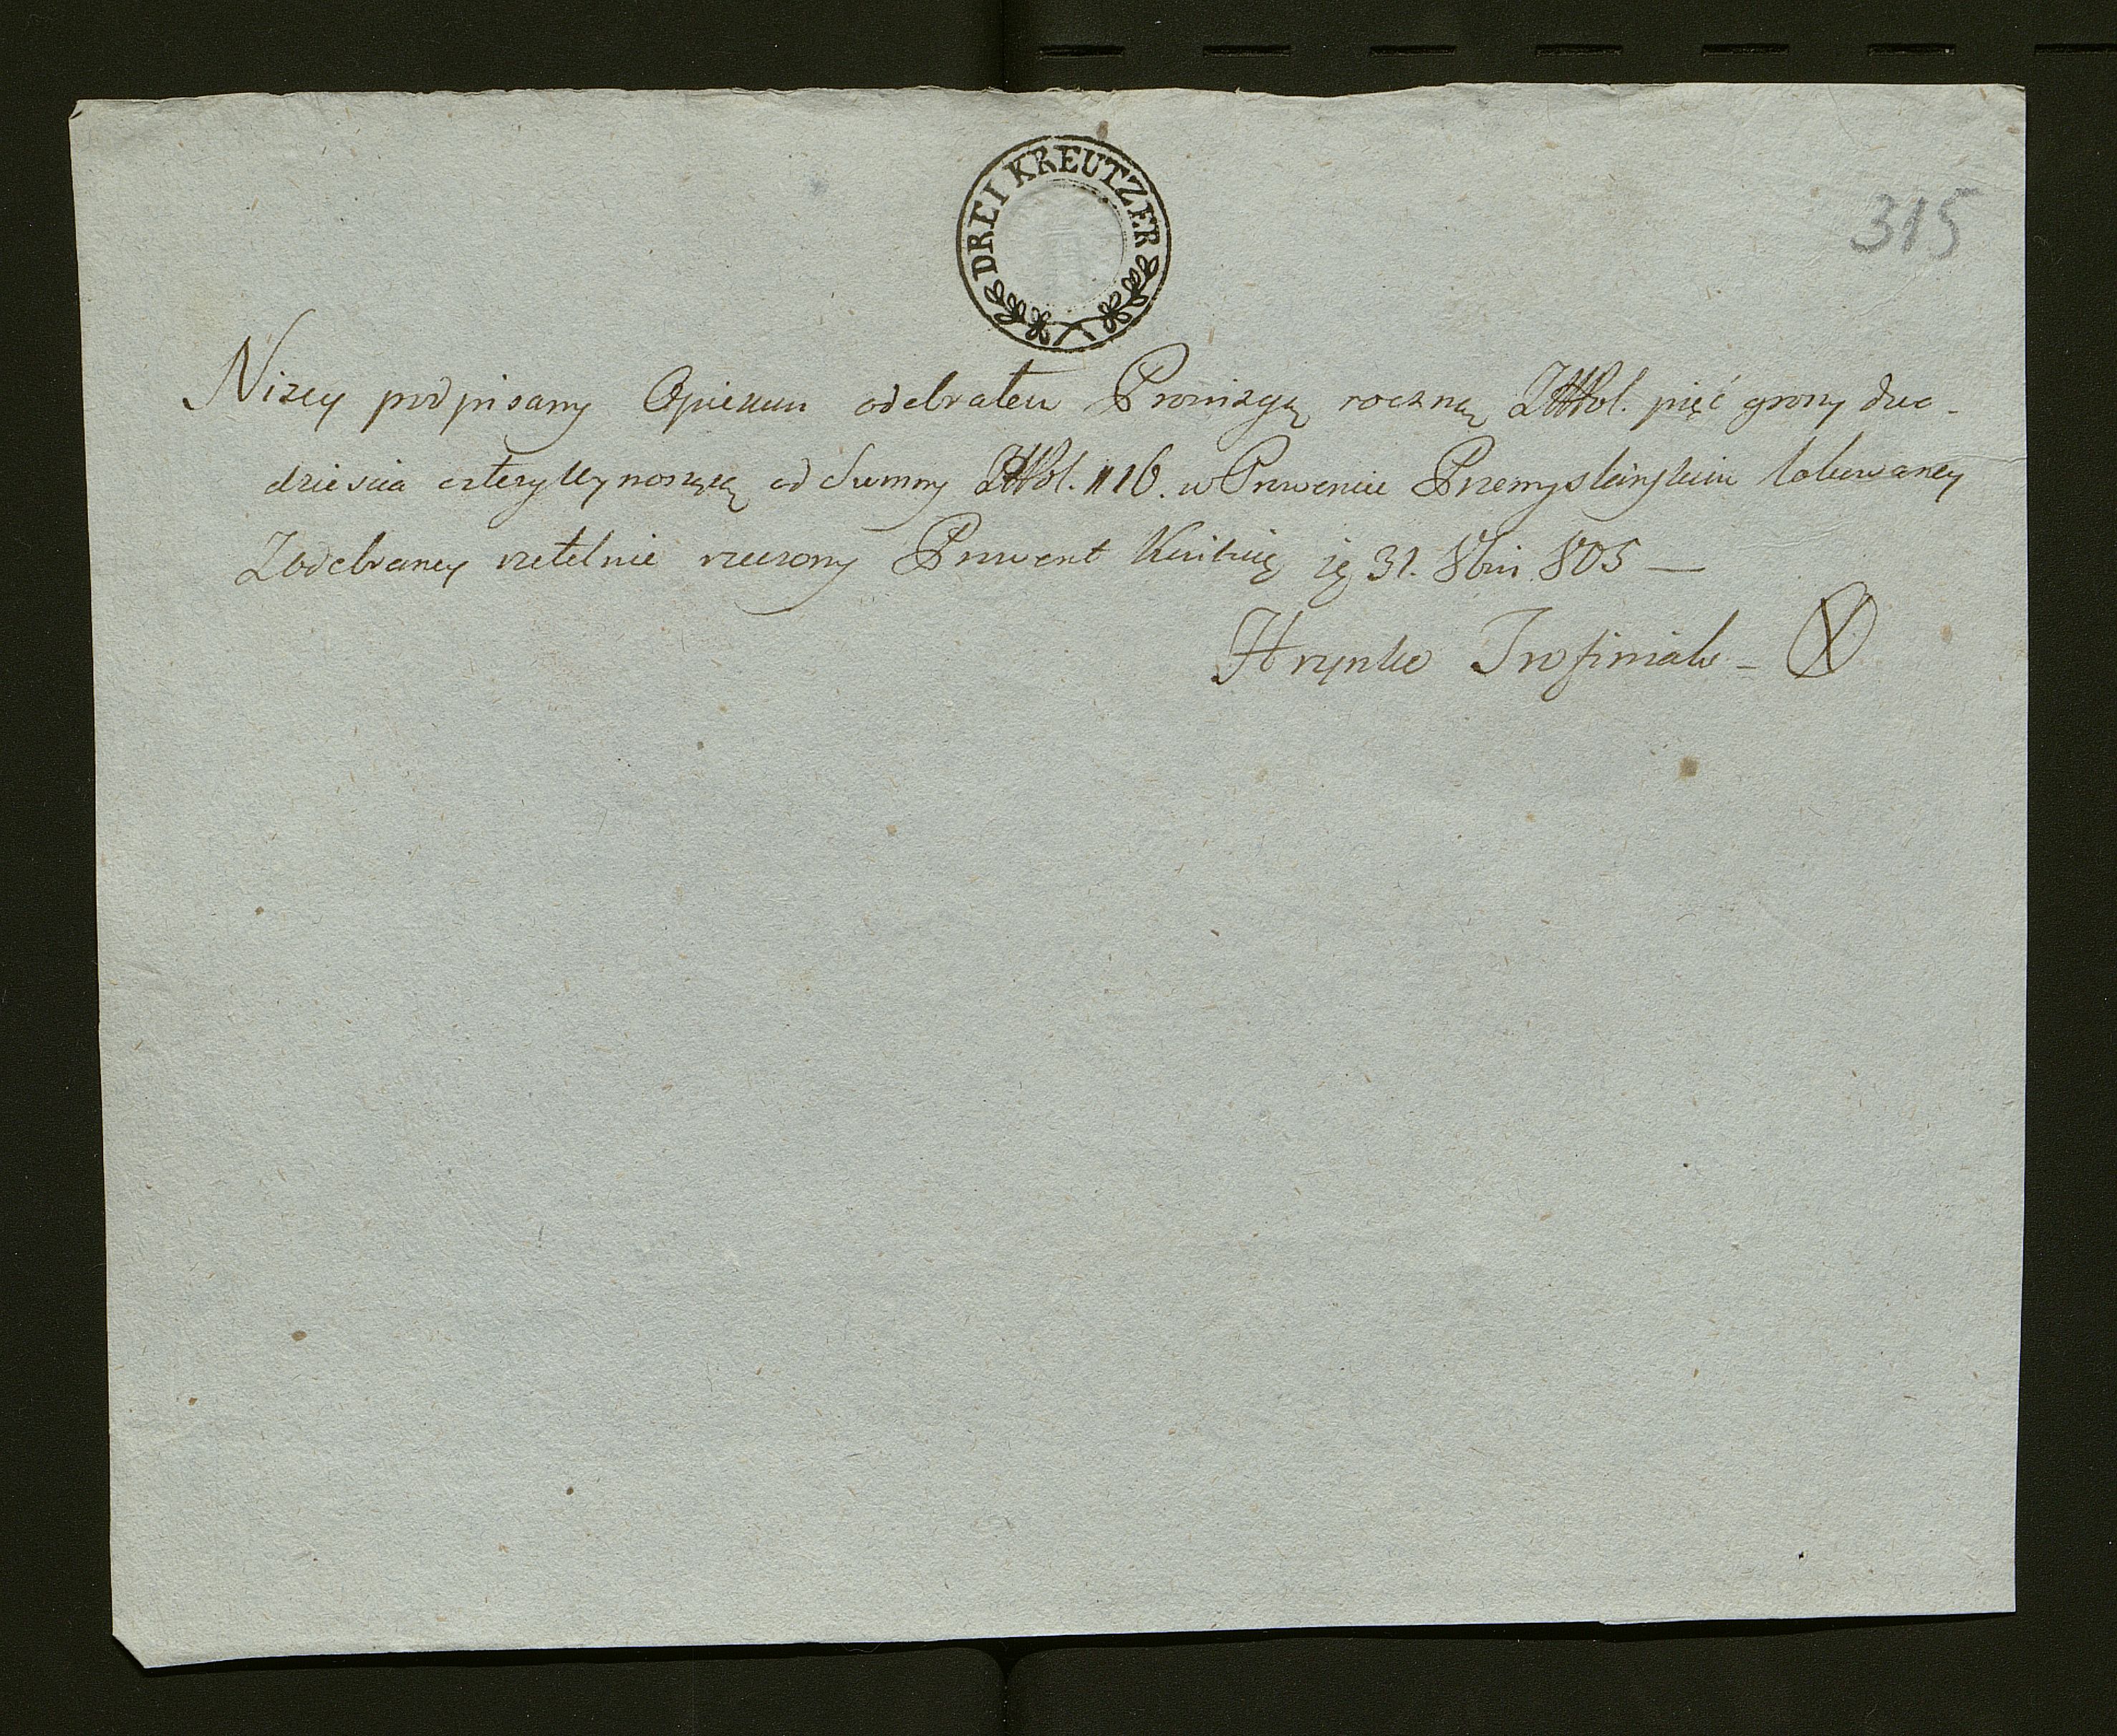 DREI KREUTZER
315
Nizey podpisany Opiekun odebrałem Prowizyą roczną ZłPol. pięć groszy dwa-
dziescia cztery Wynoszącą od Summy ZłPol. 116. w Prowencie Przemyslańskim lokowaney
Zodebraney rzetelnie rzeczony Prowent Kwituię ię 31. 8bris 805 —
Hrynko Trofimiak - X